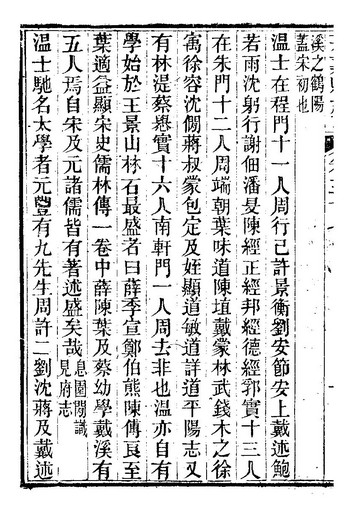 溪之鶴陽
蓋宋初也
溫士在程門十一人周行己許景衡劉安節安上戴述鮑
若雨沈躬行謝佃潘旻陳經正經邦經德經郛實十三人
在朱門十二人周端朝葉味道陳埴戴蒙林武錢木之徐
寓徐容沈僩蔣叔蒙包定及姪顯道敏道詳道平陽志又
有林湜蔡懋實十六人南軒門一人周去非也溫亦自有
學始於王景山林石最盛者曰薛季宣鄭伯熊陳傅良至
葉適益顯宋史儒林傳一卷中薛陳葉及蔡幼學戴溪有
五人焉自宋及元諸儒皆有著述盛矣哉
息園閒識
見府志
溫士馳名太學者元豐有九先生周許二劉沈蔣及戴述